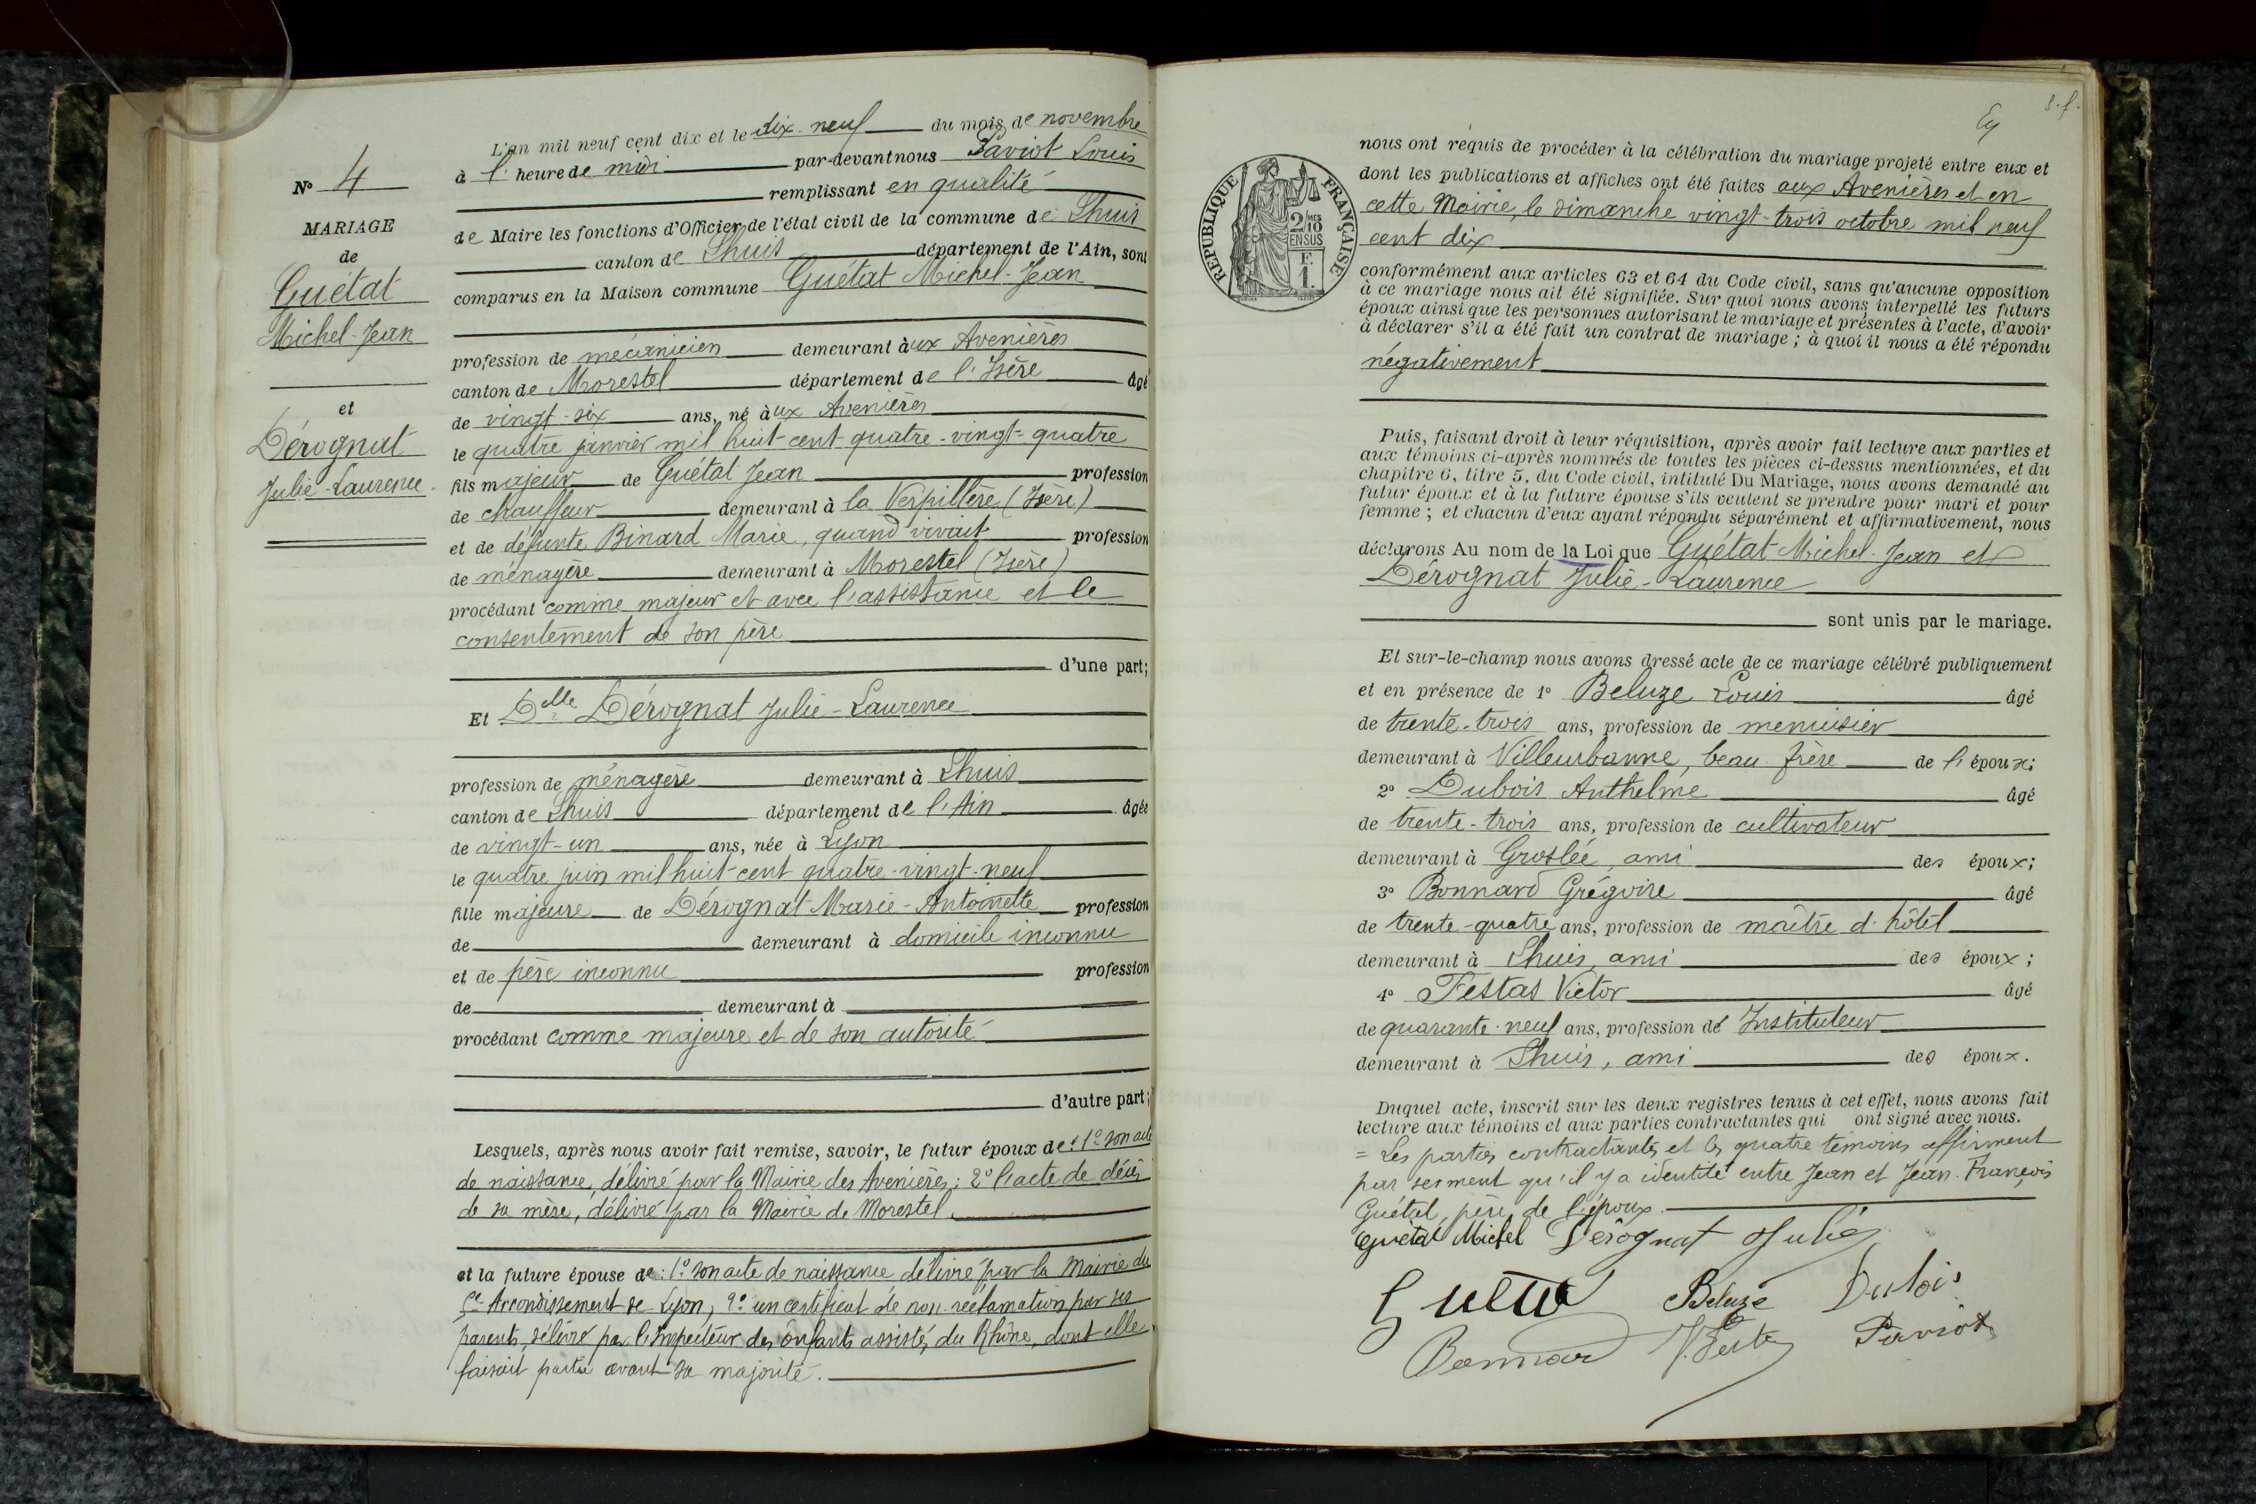 L'an mil neuf cent dix et le dix-neuf du mois de novembre
à l'heure de midi par-devant nous Paviot Louis
remplissant en qualité
de Maire les fonctions d'Officier de l'état civil de la commune de Lhuis
canton de Lhuis département de l'Ain, sont
comparus en la Maison commune Guétat Michel-Jean
profession de mécanicien demeurant aux Avenières
canton de Morestel département de l'Isère âgé
de vingt-six ans, né aux Avenières
le quatre janvier mil huit-cent quatre-vingt-quatre
fils majeur de Guétat Jean profession
de chauffeur demeurant à la Verpillère (Isère)
et de défunte Binard Marie, quand vivait profession
de ménagère demeurant à Morestel (Isère)
procédant comme majeur et avec l'assistance et le
consentement de son père
d'une part;
Et Delle Dérognat Julie-Laurence
profession de ménagère demeurant à Lhuis
canton de Lhuis département de l'Ain âgée
de vingt-un ans, née à Lyon
le quatre juin mil huit-cent quatre-vingt-neuf
fille majeure de Dérognat Marie-Antoinette profession
de demeurant à domicile inconnu
et de père inconnu profession
de demeurant à
procédant comme majeure et de son autorité
d'autre part;
Lesquels, après nous avoir fait remise, savoir, le futur époux de: 1° son acte
de naissance, délivré par la Mairie des Avenières; 2° l'acte de décès
de sa mère, délivré par la Mairie de Morestel.
et la future épouse de: 1° son acte de naissance délivré par la Mairie du
Arrondissement de Lyon, 2° un certificat de non-réclamation par ses
parents, délivré par l'Inspecteur des enfants assistés du Rhône, dont elle
faisait partie avant sa majorité.
N° 4
MARIAGE
de
Guétat
Michel-Jean
et
Dérognat
Julie-Laurence
RÉPUBLIQUE FRANÇAISE
2/10 MES
EN SUS
F.
1.
nous ont requis de procéder à la célébration du mariage projeté entre eux et
dont les publications et affiches ont été faites aux Avenières et en
cette Mairie, le dimanche vingt-trois octobre mil neuf
cent dix
conformément aux articles 63 et 64 du Code civil, sans qu'aucune opposition
à ce mariage nous ait été signifiée. Sur quoi nous avons interpellé les futurs
époux ainsi que les personnes autorisant le mariage et présentes à l'acte, d'avoir
à déclarer s'il a été fait un contrat de mariage; à quoi il nous a été répondu
négativement
Puis, faisant droit à leur réquisition, après avoir fait lecture aux parties et
aux témoins ci-après nommés de toutes les pièces ci-dessus mentionnées, et du
chapitre 6, titre 5, du Code civil, intitulé Du Mariage, nous avons demandé au
futur époux et à la future épouse s'ils veulent se prendre pour mari et pour
femme; et chacun d'eux ayant répondu séparément et affirmativement, nous
déclarons Au nom de la Loi que Guétat Michel-Jean et
Dérognat Julie-Laurence
sont unis par le mariage.
Et sur-le-champ nous avons dressé acte de ce mariage célébré publiquement
et en présence de 1° Beluze Louis âgé
de trente-trois ans, profession de menuisier
demeurant à Villeurbanne, beau-frère de l'époux;
2° Dubois Anthelme âgé
de trente-trois ans, profession de cultivateur
demeurant à Groslée, ami des époux;
3° Bonnard Grégoire âgé
de trente-quatre ans, profession de maître d'hôtel
demeurant à Lhuis, ami des époux;
4° Festas Victor âgé
de quarante-neuf ans, profession de Instituteur
demeurant à Lhuis, ami des époux.
Duquel acte, inscrit sur les deux registres tenus à cet effet, nous avons fait
lecture aux témoins et aux parties contractantes qui ont signé avec nous.
= Les parties contractantes et les quatre témoins affirment
par serment qu'il y a identité entre Jean et Jean-François
Guétat, père de l'époux.
Guétat Michel Dérognat Julie
Guétat Beluze Dubois
Bonnard V. Festas Paviot